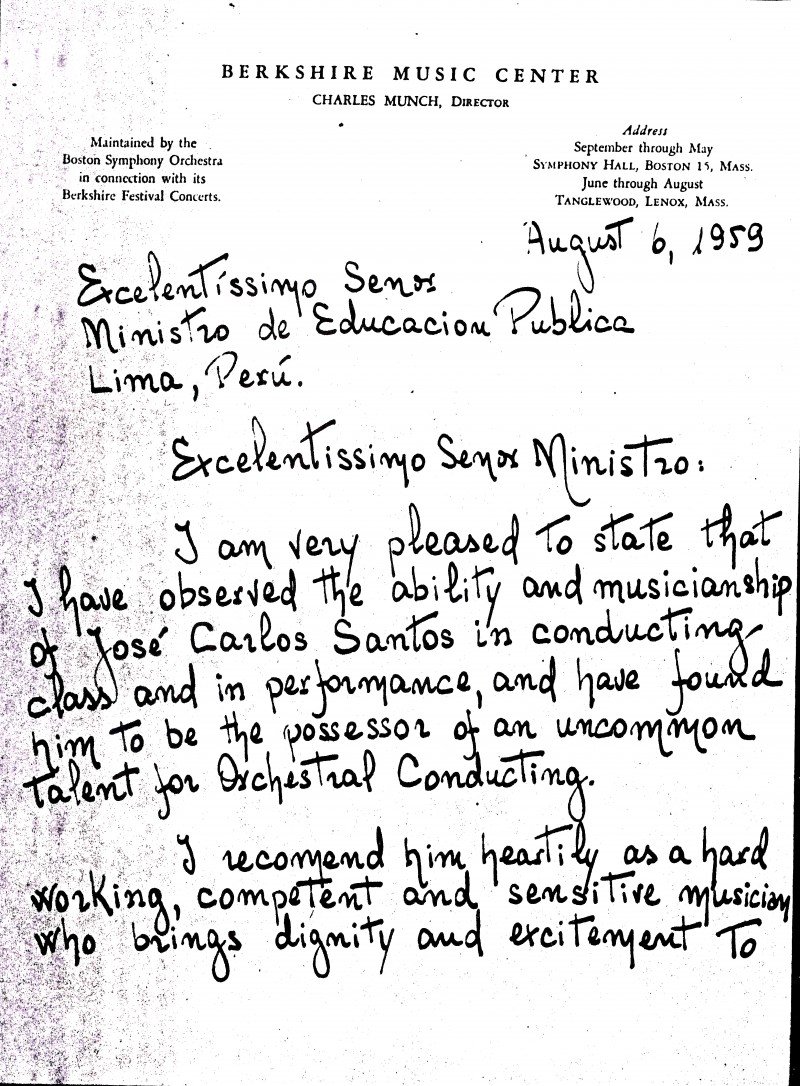 BERKSHIRE MUSIC CENTER
CHARLES MUNCH, DIRECTOR
Maintained by the
Boston Symphony Orchestra
in connection with its
Berkshire Festival Concerts.
Address
September through May
SYMPHONY HALL, BOSTON 15, MASS.
June through August
TANGLEWOOD, LENOX, MASS.
August 6, 1959
Excelentíssimo Senor
Ministro de Educacion Publica
Lima, Perú.
Excelentissimo Senor Ministro:
I am very pleased to state that
I have observed the ability and musicianship
of José Carlos Santos in conducting
class and in performance, and have found
him to be the possessor of an uncommon
talent for Orchestral Conducting.
I recomend him heartily as a hard
working, competent and sensitive musician
who brings dignity and excitement to